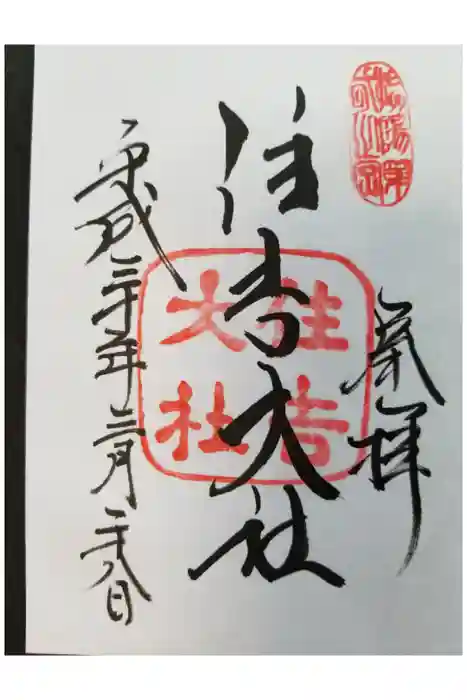 奉拝
住吉大社
住吉
大社
平成三十年三月二十八日